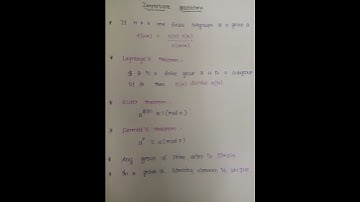 Important questions
If H & K are finite subgroups of a group G
O(HK) = O(H) O(K)
O(H∩K)
Lagrange's theorem
If G is a finite group & H is a subgroup
of G then O(H) divides O(G)
Euler theorem
≡ 1 (mod n)
Fermat's theorem
a^p ≡ a (mod p)
Any group of prime order is simple
In a group G, identity element is unique